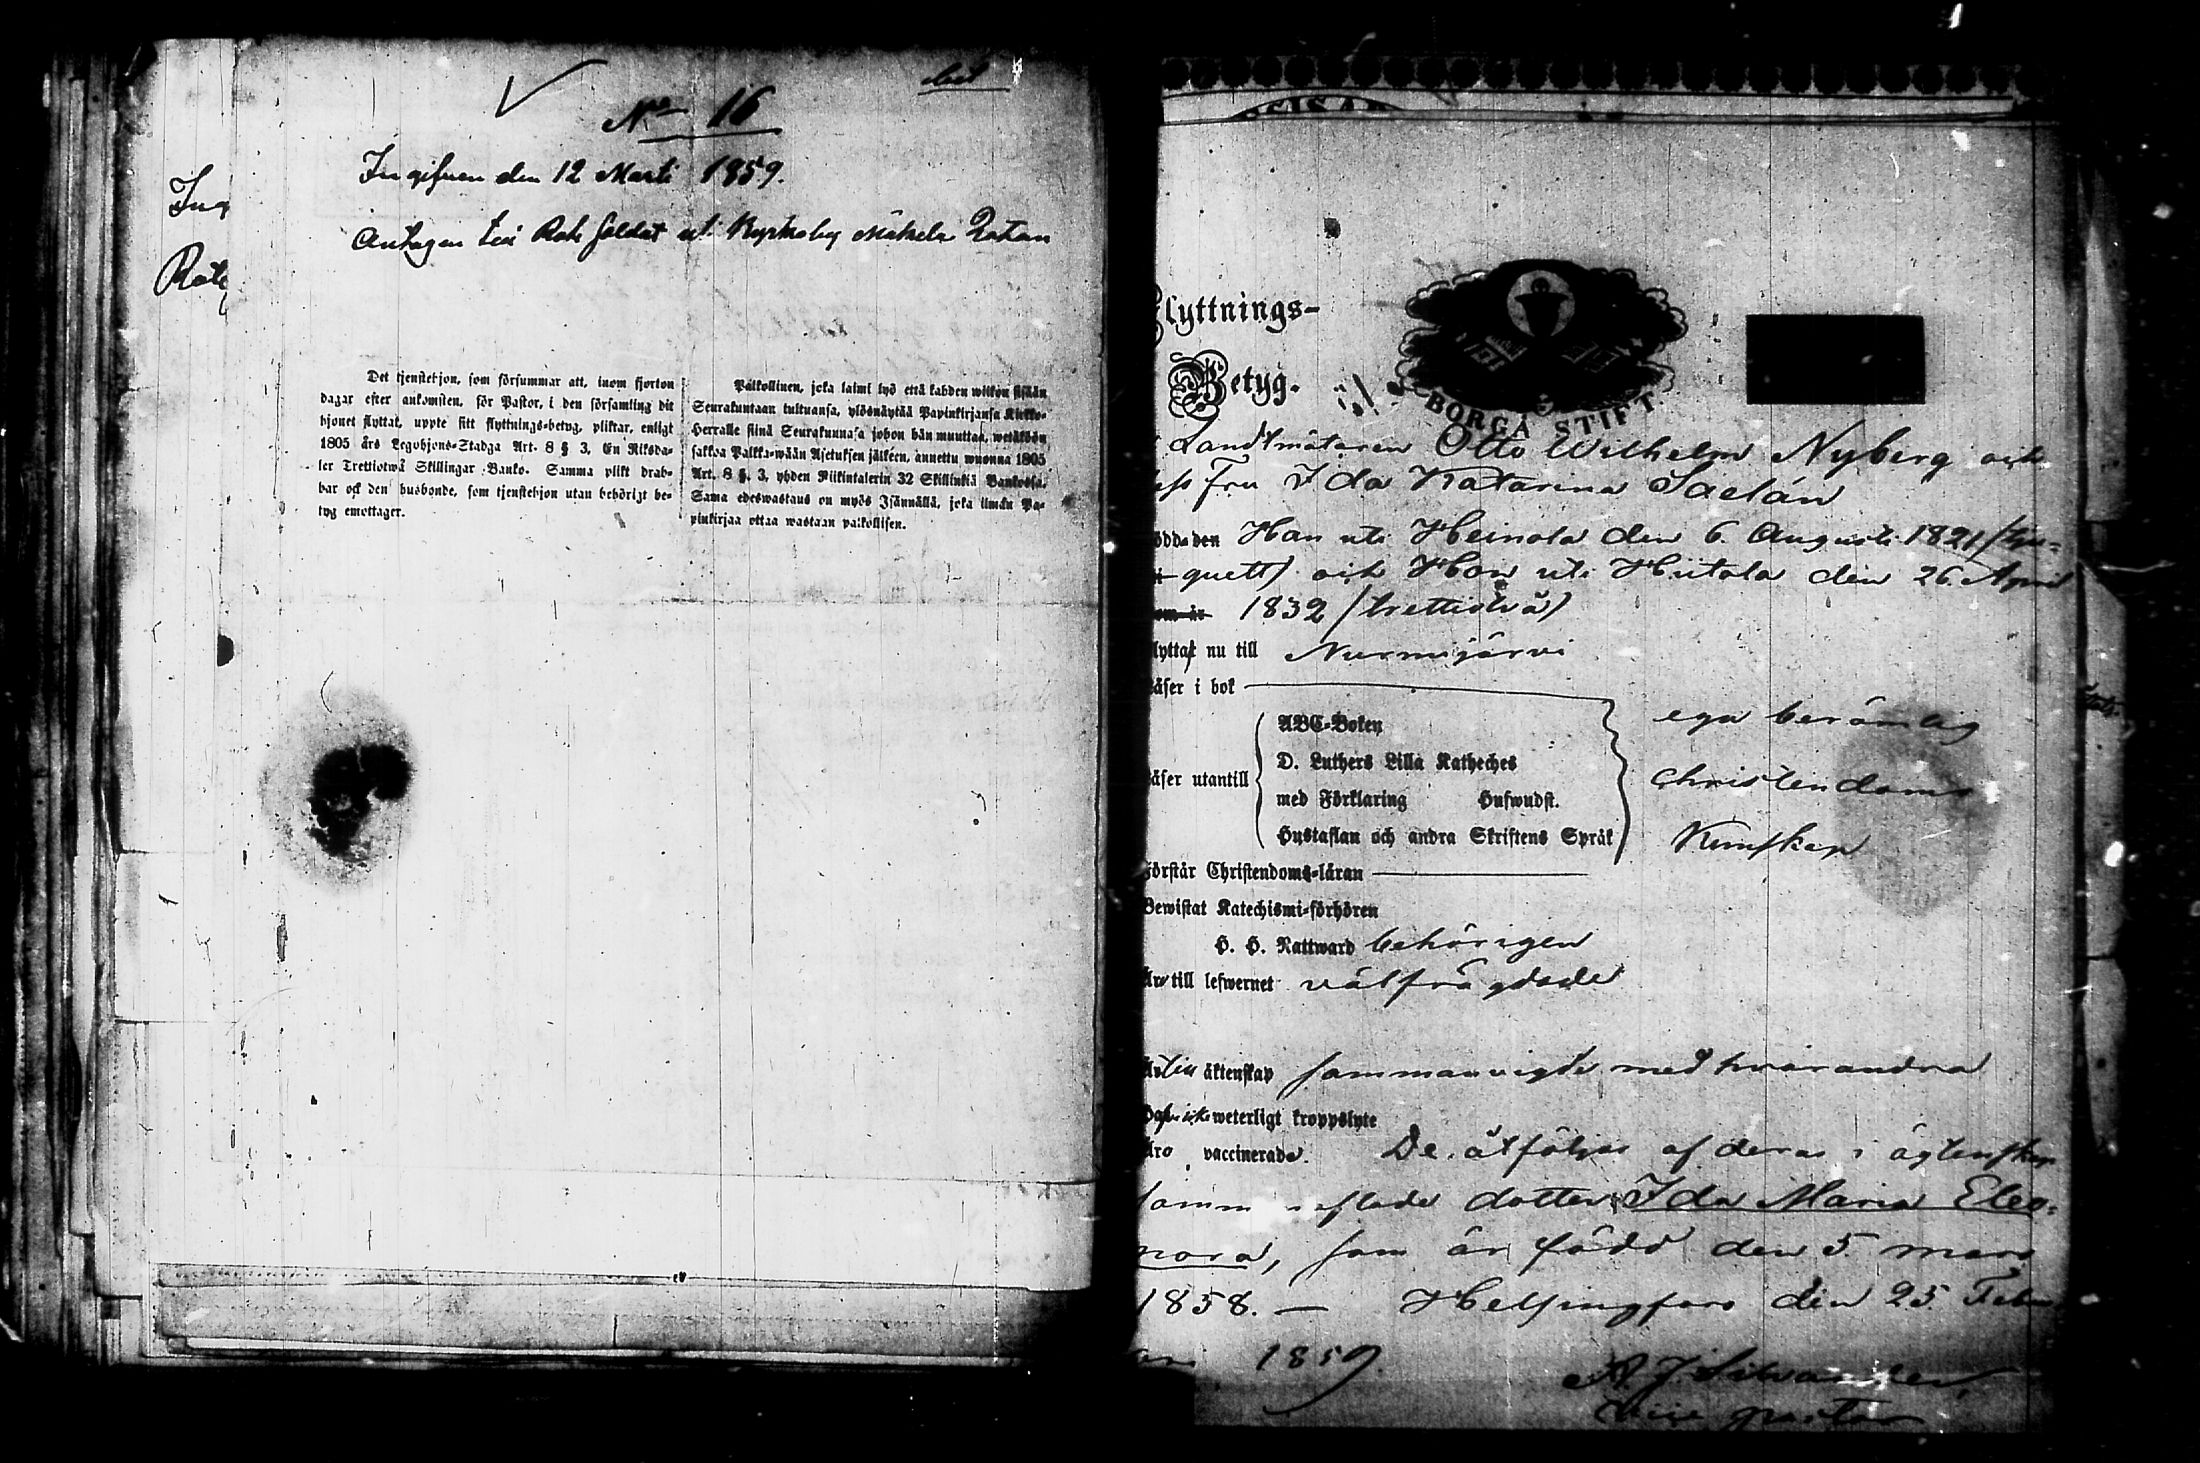 No 16
Ingifven den 12 Marti 1859.
Antagen till Rote Soldat uti Kyrkoby Mäkelä Rotan
Ing
Rote
Det tjenstehjon, som försummar att, inom fjorton
dagar efter ankomsten, för Pastor, i den församling dit
hjonet flyttat, uppte sitt flyttnings-betyg, pliktar, enligt
1805 års Legohjons-Stadga Art. 8 § 3, En Riksda-
ler Trettiotwå Skillingar Banko. Samma plikt drab-
bar ock den husbonde, som tjenstehjon utan behörigt be-
tyg emottager.
Palkollinen, joka laimi lyö että kahden wiikon sisään
Seurakuntaan tultuansa, ylösnäytää Papinkirjansa Kirkko-
Herralle siinä Seurakunnasa johon hän muuttaa, wetäköön
sakkoa Palkka-wään Asetuksen jälkeen, annettu wuonna 1805
Art. 8 §. 3, yhden Riikintalerin 32 Skillinkiä Bankossa.
Sama edeswastaus on myös Isännällä, joka ilman Pa-
pinkirjaa ottaa wastaan palkollisen.
Flyttnings-
Betyg.
BORGÅ STIFT
Landtmätaren Otto Wilhelm Nyberg och
Fru Ida Katarina Saelán
födde den Han uti Heinola den 6. Augusti 1821 /tju-
guett/ och Hon uti Hiitola den 26. April
1832 /trettiotvå/
flyttat nu till Nurmijärvi
Läser i bok
Läser utantill
ABC-Boken
D. Luthers Lilla Katheches
med Förklaring Hufwudst.
Hustaflan och andra Skriftens Språk
ega berömlig
Christendoms
Kunskap
Förstår Christendoms-läran
Bewistat Katechismi-förhören
H. H. Nattward behörigen
Äro till lefwernet välfrägdade
till äktenskap sammanvigde med hvarandra
weterligt kroppslyte
Äro vaccinerade. De åtföljas af deras i ägtenskap
sammanaflade dotter Ida Maria Eleo-
nora, som är född den 5 mars
1858. — Helsingfors den 25 Febru
1859.
Vice pastor